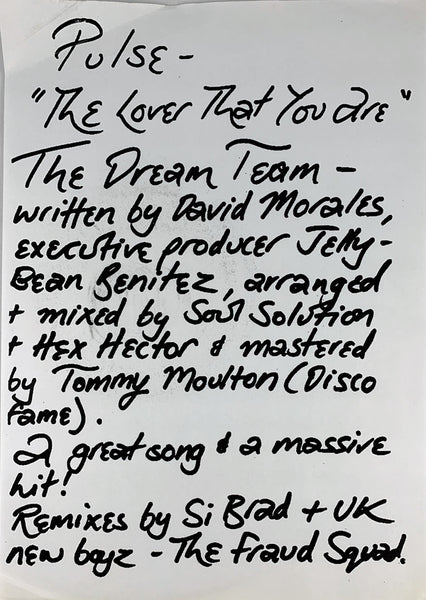 Pulse -
"The Lover That You are"
The Dream Team -
written by David Morales,
executive producer Jelly-
Bean Benitez, arranged
+ mixed by Soul Solution
+ Hex Hector & mastered
by Tommy Moulton (Disco
Fame).
A great song & a massive
hit!
Remixes by Si Brad + UK
new boyz - The Fraud Squad.